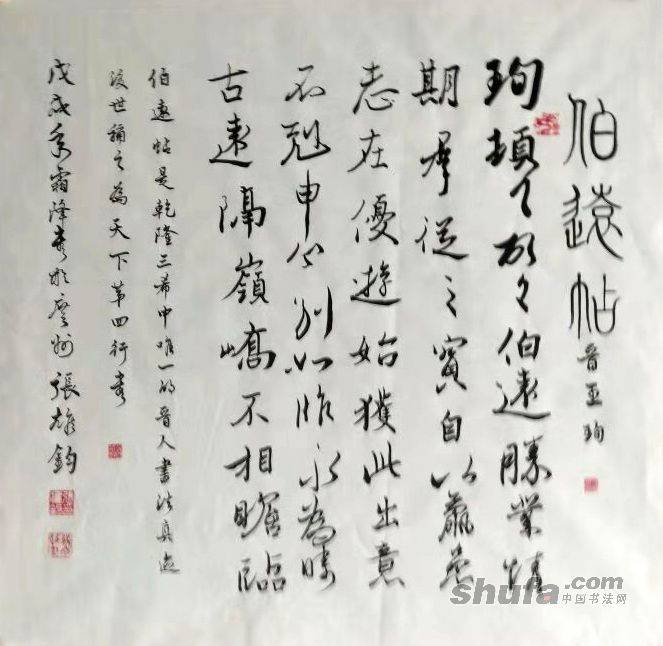 伯遠帖 晋王珣
珣頓首頓首伯遠勝業情
期羣從之寶自以羸患
志在優遊始獲此出意
不剋申分別如昨永為疇
古遠隔嶺嶠不相瞻臨
伯遠帖是乾隆三希中唯一的晋人書法真迹
後世稱之為天下第四行書
戊戌年霜降書於廣州張雄鈞
shufa.com
中国书法网